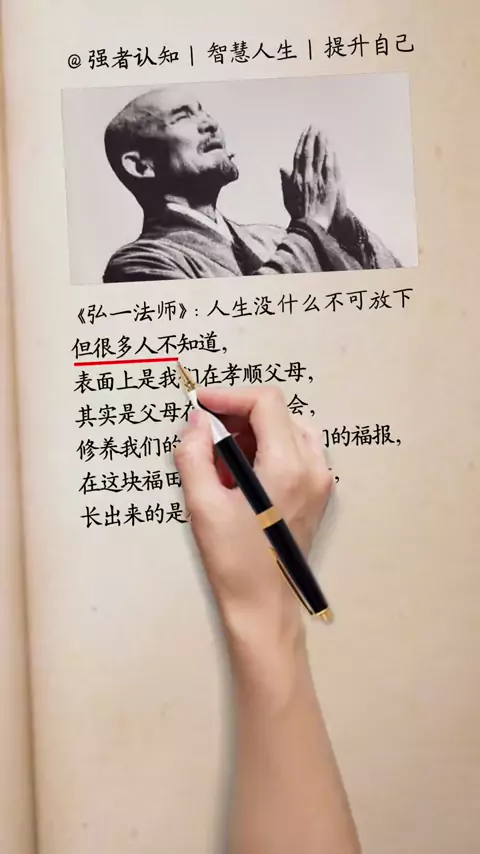 @强者认知 | 智慧人生 | 提升自己
《弘一法师》：人生没什么不可放下
但很多人不知道，
表面上是我们在孝顺父母，
其实是父母在 会，
修养我们的 们的福报，
在这块福田 ，
长出来的是